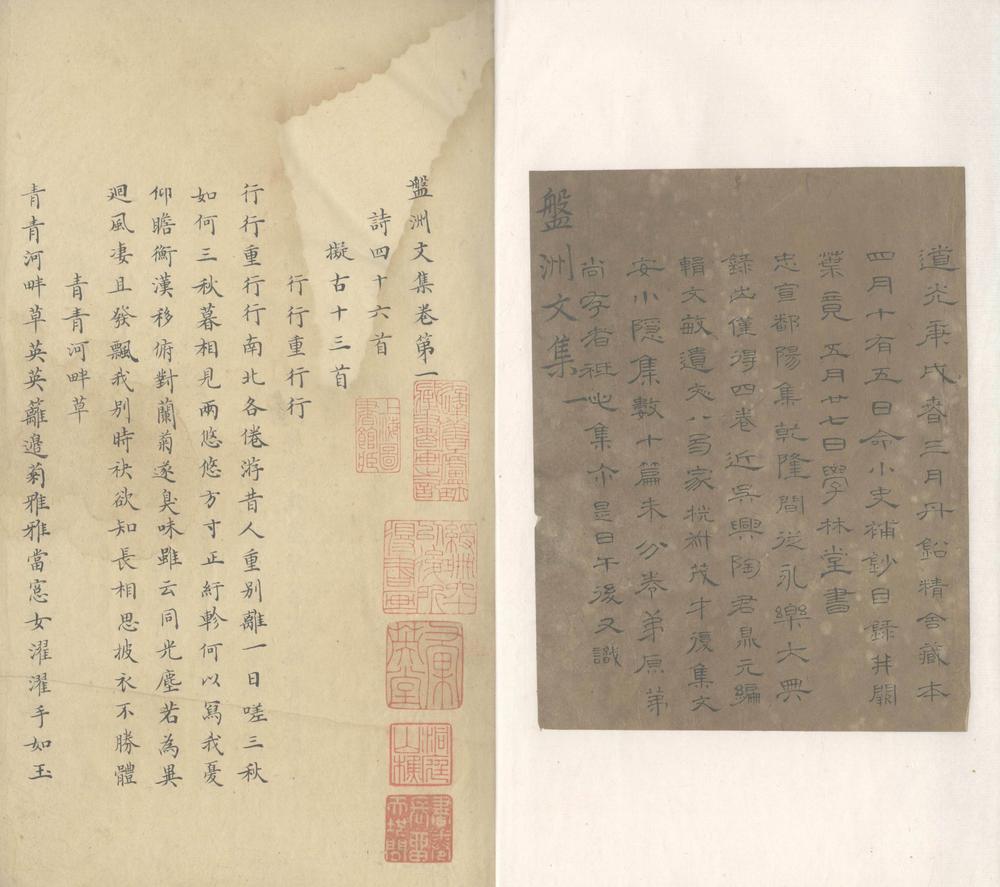 道光庚戌春三月丹鉛精舍藏本
四月十有五日命小史補鈔目錄并闕
葉竟 五月廿七日學林堂書
忠宣鄱陽集乾隆間從永樂大典
錄出僅得四卷近吳興陶君鼎元編
輯文敏遺文八
茂才復集文
安小隱集數十篇未分卷弟原弟
尚存者祇此集亦是日午後又識
盤洲文集一
盤洲文集卷第一
詩四十六首
擬古十三首
行行重行行
行行重行行南北各倦游昔人重別離一日嗟三秋
如何三秋暮相見兩悠悠方寸正紆軫何以寫我憂
仰瞻衡漢移俯對蘭菊遂臭味雖云同光塵若為異
迴風凄且發飄我別時袂欲知長相思披衣不勝體
青青河畔草
青青河畔草英英籬邊菊雅雅當窓女濯濯手如玉
上海圖書館藏
洞庭山樵